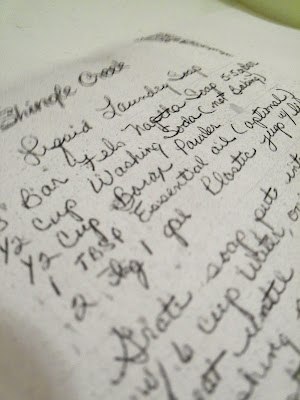 Shingle Creek
Liquid Laundry Soap
Bar Fels Naptha Soap 5.5oz
1/2 Cup Washing Soda (not Baking)
1/2 Cup Borax Powder
1 TBSP Essential oil (optional)
2 1 gal Plastic jug w/
Grate soap put int
w/ 6 cup water, on
eat until
shing